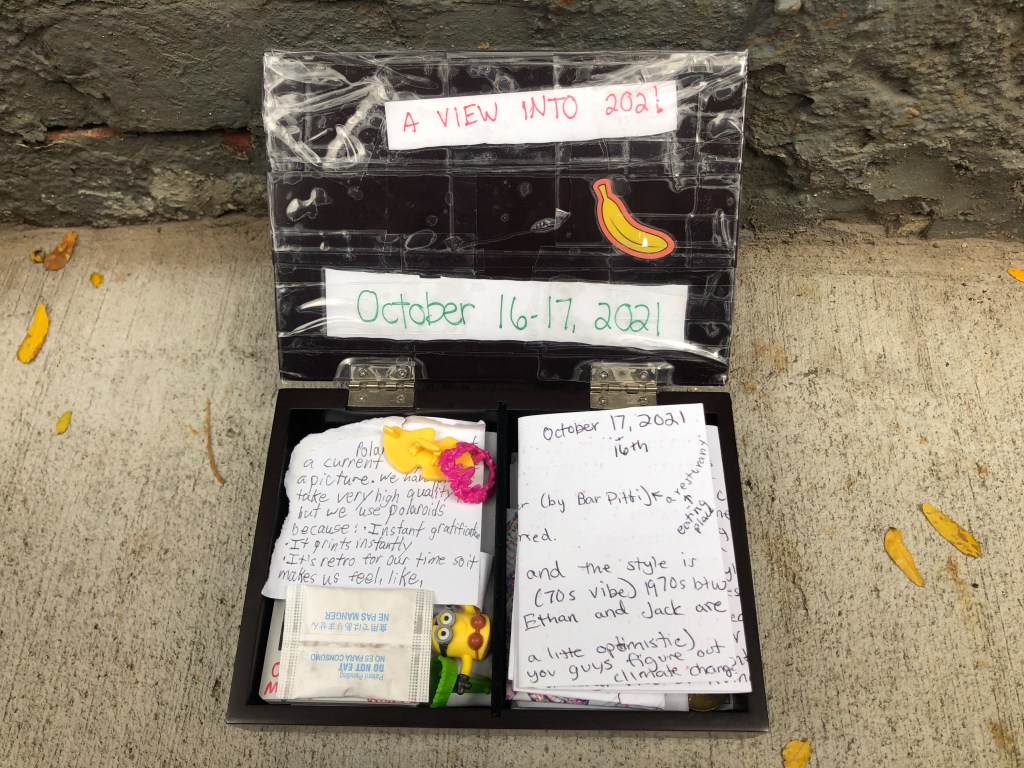 A VIEW INTO 2021
October 16-17, 2021
a current
a picture. we have
take very high quality
but we use polaroids
because: • Instant gratification
• It prints instantly
• It's retro for our time so it
makes us feel, like,
食用ではありません
NE PAS MANGER
Patent Pending
NO ES PARA CONSUMO
DO NOT EAT
October 17, 2021
16th
(by Bar Pitti) ← a resturant
eating place
and the style is
(70s vibe) 1970s btw
Ethan and Jack are
a little optimistic)
you guys figure out
climate change